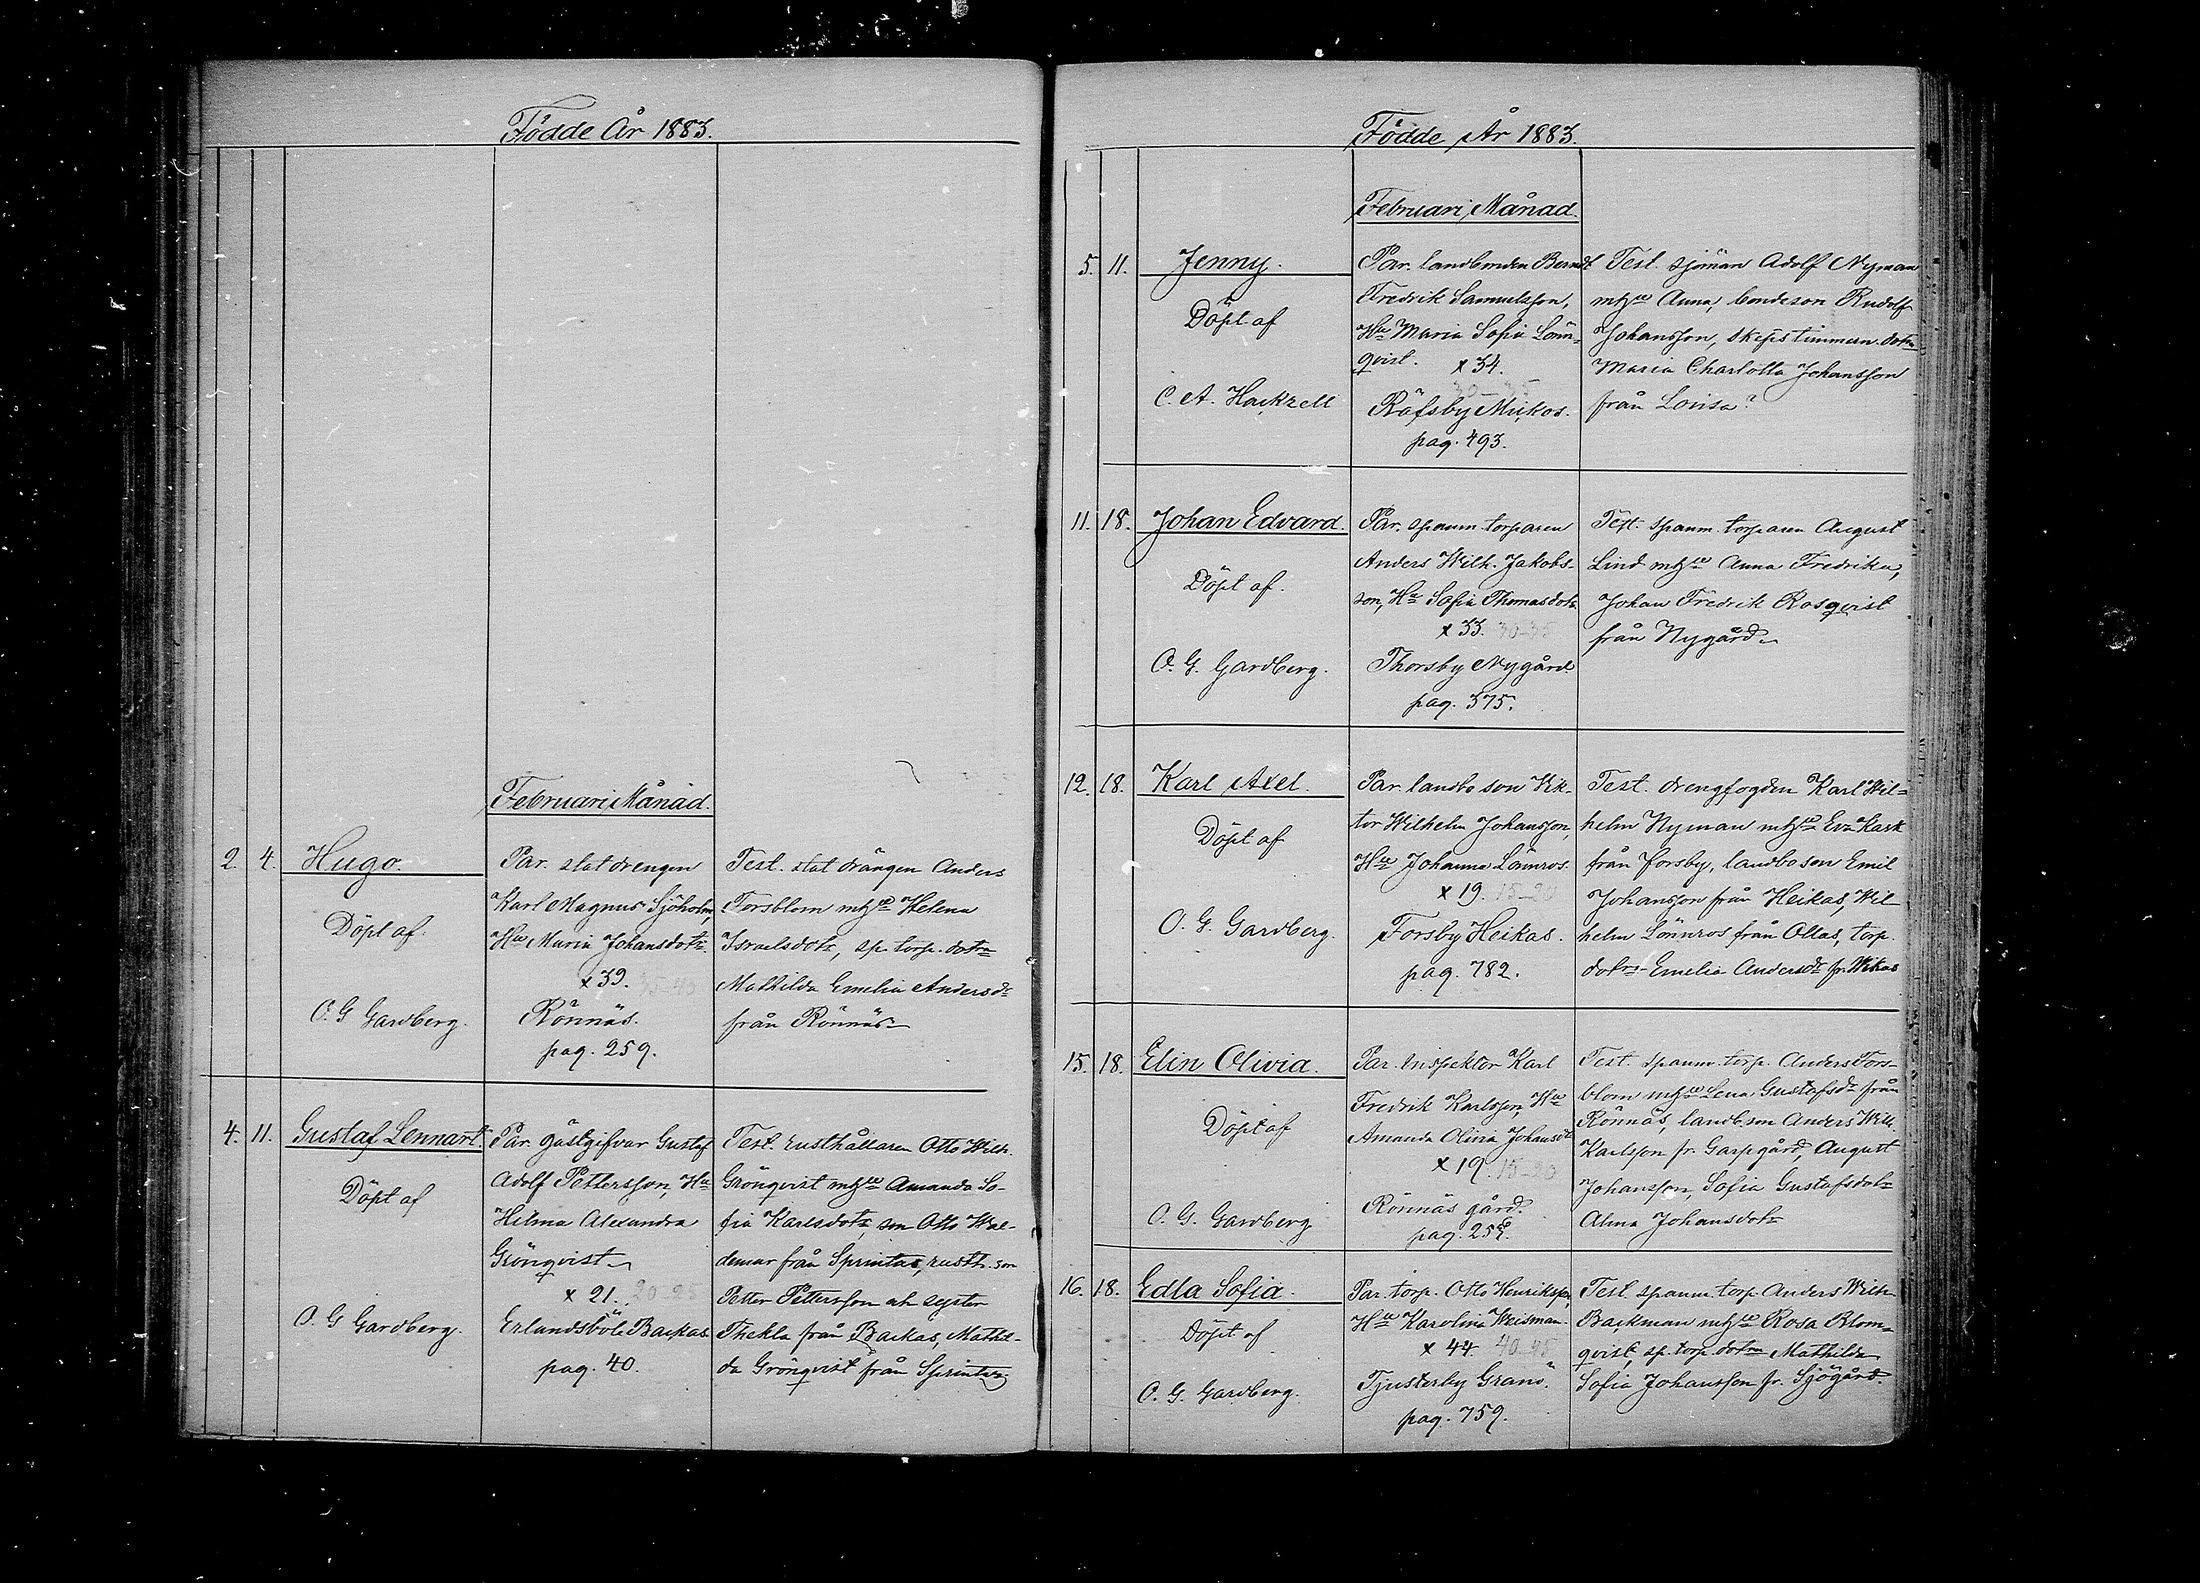 Födde År 1883.
Februari Månad.
2. 4. Hugo.
Döpt af
O. G Gardberg.
Par. statdrengen
Karl Magnus Sjöholm,
Hu Maria Johansdotr.
x 39. 35-40
Rönnäs.
pag. 259.
Test. stat drängen Anders
Forsblom m hu Helena
Israelsdotr, sp. torp. dotrn
Mathilda Emelia Andersdr
från Rönnäs
4. 11. Gustaf Lennart.
Döpt af
O. G Gardberg.
Par. gästgifvar Gustaf
Adolf Pettersson, Hu
Hilma Alexandra
Grönqvist
x 21. 20-25
Erlandsböle Backas.
pag. 40.
Test. rusthållaren Otto Wilh.
Grönqvist m hu Amanda So-
fia Karlsdotr, son Otto Wal-
demar från Sprintas, rusth. son
Petter Pettersson och syster
Thekla från Backas, Mathil-
da Grönqvist från Sprintas
Födde År 1883.
Februari Månad.
5. 11. Jenny.
Döpt af
C. A. Hackzell
Par. landbonden Berndt
Fredrik Samuelsson,
Hu Maria Sofia Lönn-
qvist. x 34.
30-35
Räfsby Mickos.
pag. 493.
Test. sjöman Adolf Nyman
m hu Anna, bondeson Rudolf
Johansson, skeps timmerm. dotrn
Maria Charlotta Johansson
från Lovisa
11. 18. Johan Edvard.
Döpt af.
O. G. Gardberg.
Par. spanm. torparen
Anders Wilh. Jakobs-
son, Hu Sofia Thomasdotr
x 33. 30-35
Thorsby Nygård
pag. 575.
Test. spanm. torparen August
Lind m hu Anna Fredrika,
Johan Fredrik Rosqvist
från Nygård
12. 18. Karl Axel.
Döpt af
O. G. Gardberg.
Par. landbo son Vik-
tor Wilhelm Johansson,
Hu Johanna Lönnros.
x 19. 15-20
Forsby Heikas.
pag. 782.
Test. drengfogden Karl Wil-
helm Nyman m hu Eva Kask
från Forsby, landbo son Emil
Johansson från Heikas, Wil-
helm Lönnros från Ollas, torp.
dotrn Emelia Andersdr fr. Wikas
15. 18. Elin Olivia.
Döpt af
O. G. Gardberg
Par. Inspektor Karl
Fredrik Karlsson, Hu
Amanda Olivia Johansdr
x 19. 15-20
Rönnäs gård.
pag. 259.
Test. spanm. torp. Anders Fors-
blom m hu Lena Gustafsdr från
Rönnäs, landb. son Anders Wilh.
Karlsson fr. Garpgård, August
Johansson, Sofia Gustafsdotr
Alma Johansdotr
16. 18. Edla Sofia.
Döpt af
O. G. Gardberg.
Par. torp. Otto Henriksson,
Hu Karolina Weisman.
x 44. 40-45
Tjusterby Granö.
pag. 759.
Test. spanm. torp. Anders Wilh
Backman m hu Rosa Blom-
qvist, sp. torp. dotrn Mathilda
Sofia Johansson fr. Sjögård.